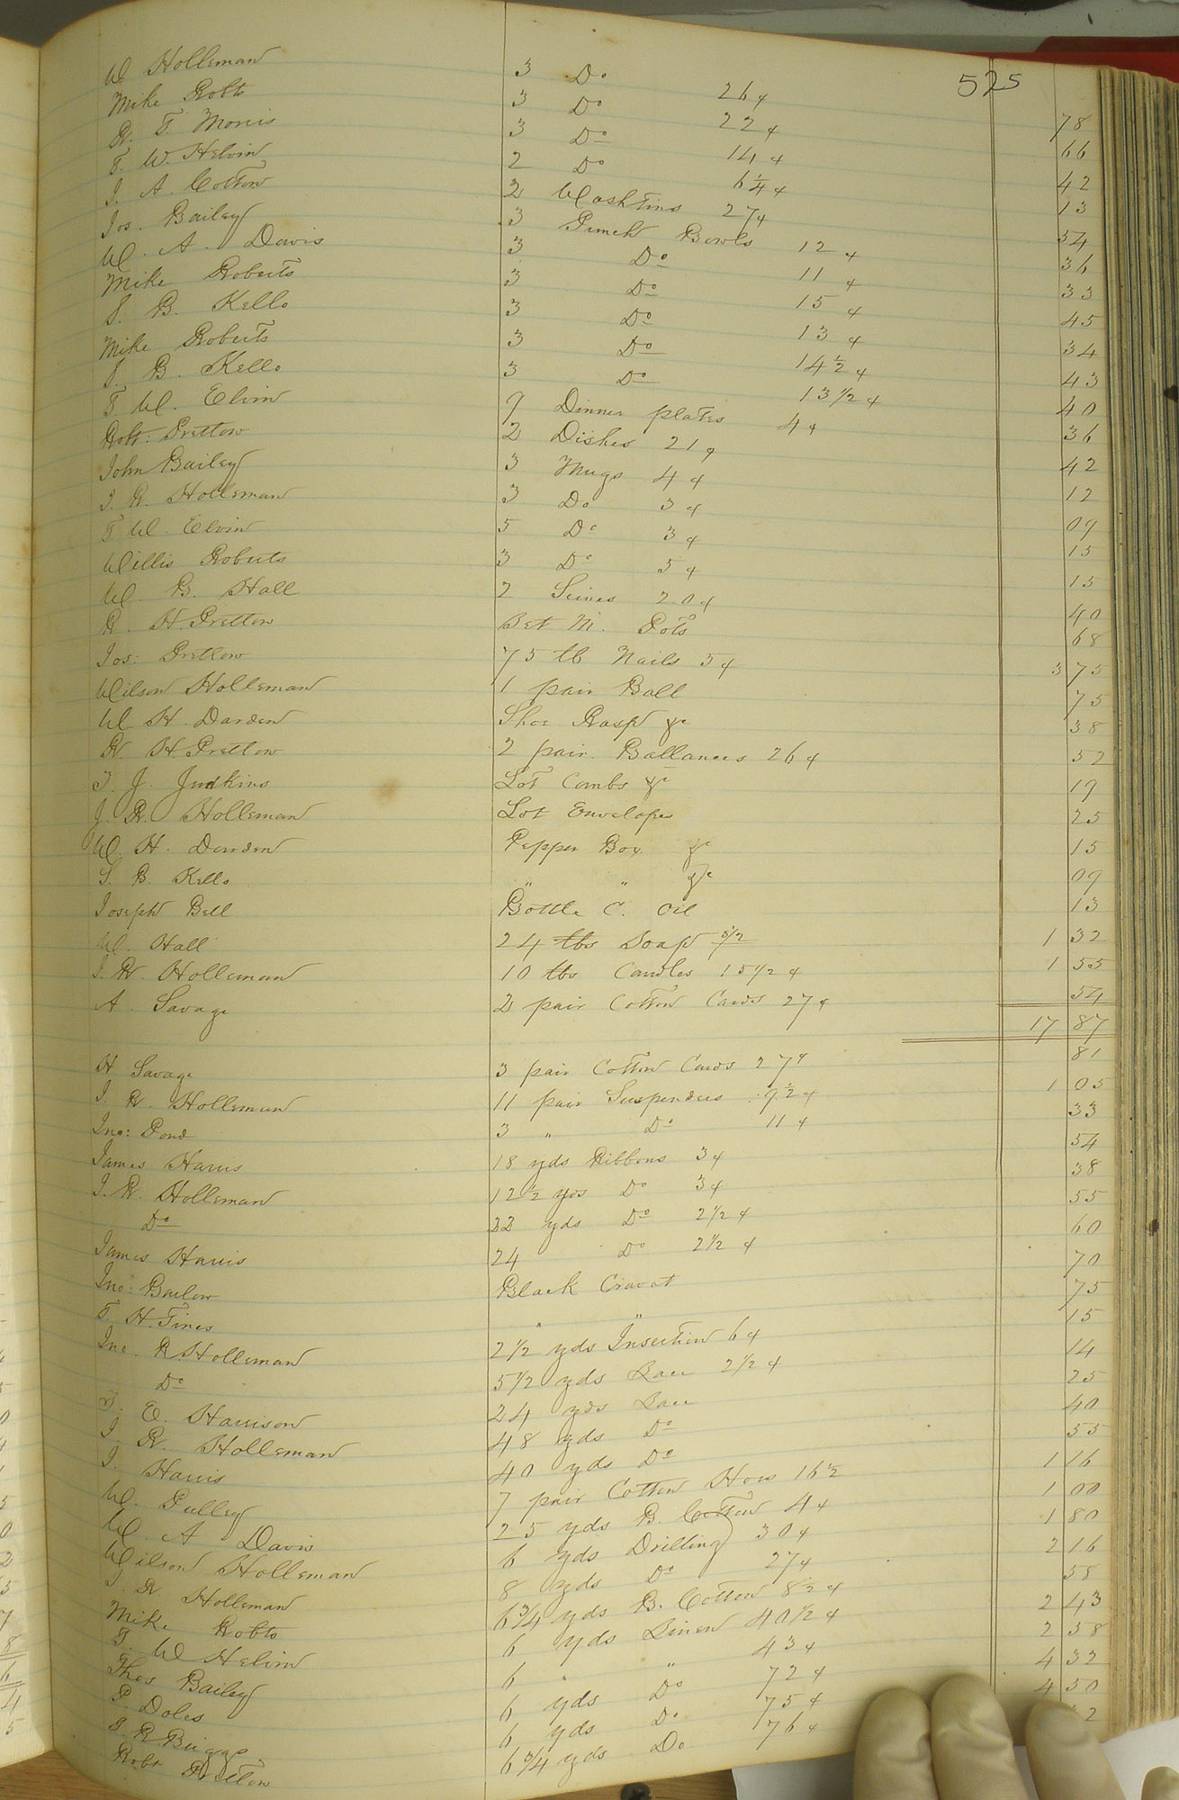 525
W Holleman 3 Do 26 ¢ 78
Mike Robts 3 Do 22 ¢ 66
R. T. Morris 3 Do 14 ¢ 42
T. W. Helvin 2 Do 6 1/4 ¢ 13
J. A. Cotton 2 Wash tins 27 ¢ 54
Jos. Bailey 3 Punch Bowls 12 ¢ 36
W. A. Davis 3 Do 11 ¢ 33
Mike Roberts 3 Do 15 ¢ 45
S. B. Kello 3 Do 13 ¢ 34
Mike Roberts 3 Do 14 1/2 ¢ 43
S. B. Kello 3 Do 13 1/2 ¢ 40
T. W. Elvin 9 Dinner plates 4 ¢ 36
Robt: Pretlow 2 Dishes 21 ¢ 42
John Bailey 3 Mugs 4 ¢ 12
J. R. Holleman 3 Do 3 ¢ 09
T. W. Elvin 5 Do 3 ¢ 15
Willis Roberts 3 Do 5 ¢ 15
W. B. Hall 2 20 ¢ 40
R. H. Pretlow Set M. Pots 68
Jos: Pretlow 75 lb Nails 5 ¢ 3 75
Wilson Holleman 1 pair Ball 75
W H. Darden Shoe Rasp &c 38
R H. Pretlow 2 pair Ballances 26 ¢ 52
J. J. Judkins Lot Combs &c 19
J. R. Holleman Lot Envelopes 25
W. H. Darden Pepper Box &c 15
S. B. Kello " " &c 09
Joseph Bell Bottle C. Oil 13
W. Hall 24 lbs Soap 5 1/2 1 32
J. R. Holleman 10 lbs Candles 15 1/2 ¢ 1 55
A. Savage 2 pair Cotton Cards 27 ¢ 54
17 87
H Savage 3 pair Cotton Cards 27 ¢ 81
J. R. Holleman 11 pair Suspenders 9 1/2 ¢ 1 05
Jno: Pond 3 " Do 11 ¢ 33
James Harris 18 yds Ribbons 3 ¢ 54
J. R. Holleman 12 1/2 yds Do 3 ¢ 38
Do 22 yds Do 2 1/2 ¢ 55
James Harris 24 Do 2 1/2 ¢ 60
Jno: Barlow Black Cravat 70
T. H. Tines " " 75
Jno. R. Holleman 2 1/2 yds Insertion 6 ¢ 15
Do 5 1/2 yds Lace 2 1/2 ¢ 14
E. Harrison 24 yds Lace 25
J. R. Holleman 48 yds Do 40
J. Harris 40 yds Do 55
W. Pulley 7 pair Cotton Hose 16 1/2 1 16
W. A Davis 25 yds B. Cotton 4 ¢ 1 00
Wilson Holleman 6 yds Drilling 30 ¢ 1 80
J. R Holleman 8 yds Do 27 ¢ 2 16
Mike Robts 6 3/4 yds B. Cotton 8 1/2 ¢ 58
T. W Helvin 6 yds Linen 40 1/2 ¢ 2 43
Thos Bailey 6 " " 43 ¢ 2 58
P. Doles 6 yds Do 72 ¢ 4 32
S. R. Briggs 6 yds Do 75 ¢ 4 50
Robt Pretlow 6 3/4 yds Do 76 ¢